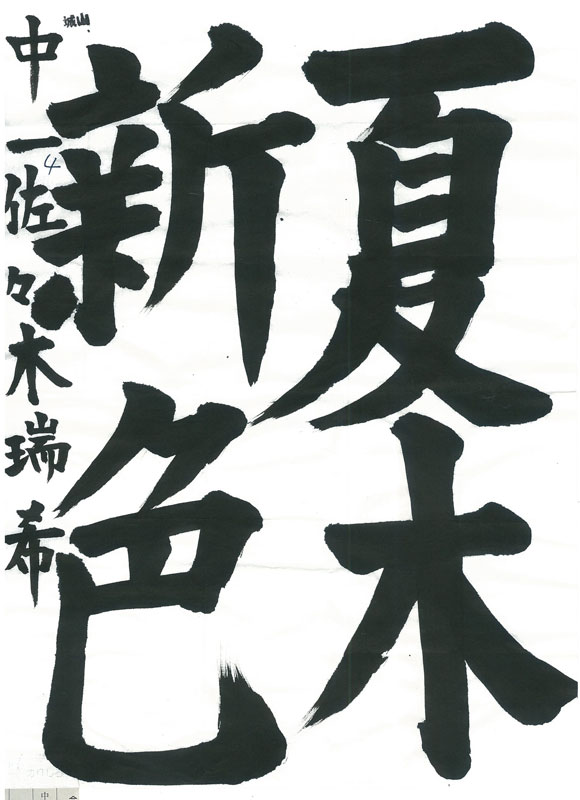 夏木
新色
中一佐々木瑞希
城山
4
中